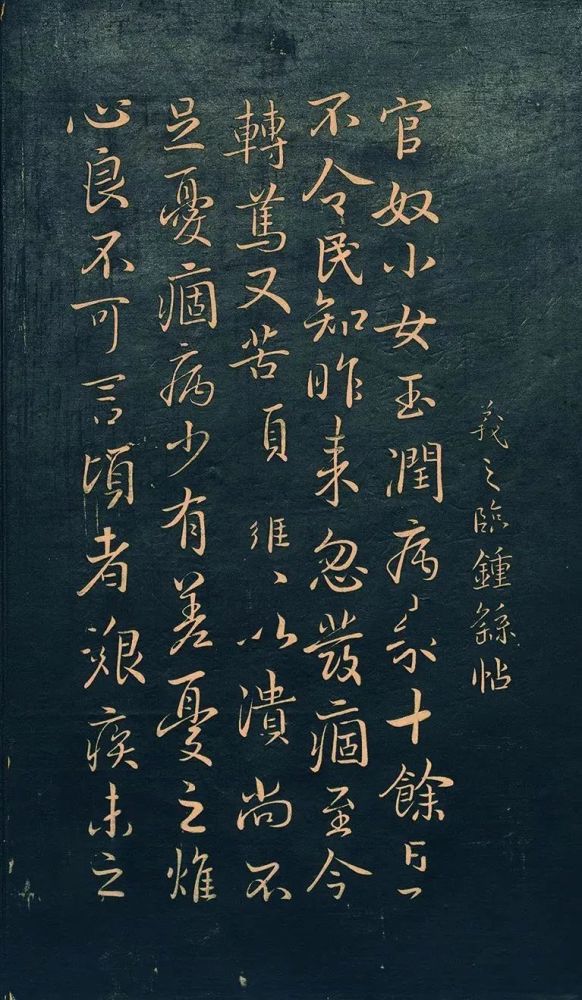 羲之臨鍾繇帖
官奴小女玉潤病來十餘日
不令民知昨来忽發痼至今
轉篤又苦頁 維、以潰尚不
足憂痼病少有差憂之燋
心良不可言頃者艱疾未之